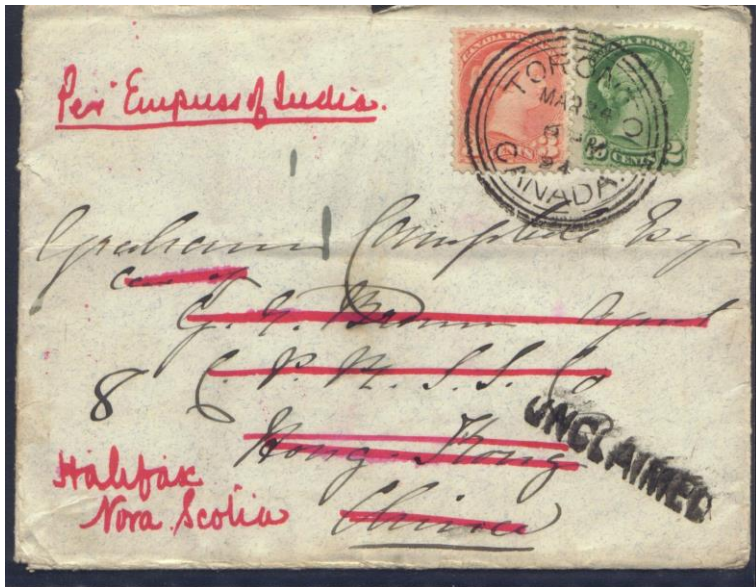 Per Empress of India.
CANADA POSTAGE
3 CENTS
CANADA POSTAGE
2 CENTS 2
TORONTO
MAR 24
PM
94
CANADA.
Graham Campbell Esq
Care of
G. G. Brown Agent
8 C. P. M. S. S. Co
Hong Kong
China
UNCLAIMED
Halifax
Nova Scotia